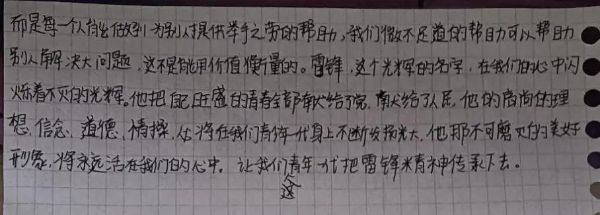 而是每一个人能做到为别人提供举手之劳的帮助,我们微不足道的帮助可以帮助
别人解决大问题,这不是能用价值衡量的。雷锋,这个光辉的名字,在我们的心中闪
烁着不灭的光辉。他把自己旺盛的青春全部奉献给了党,奉献给了人民,他的高尚的理
想、信念、道德、情操,必将在我们青年一代身上不断发扬光大,他那不可磨灭的美好
形象,将永远活在我们的心中。让我们青年一代把雷锋精神传承下去。
这个